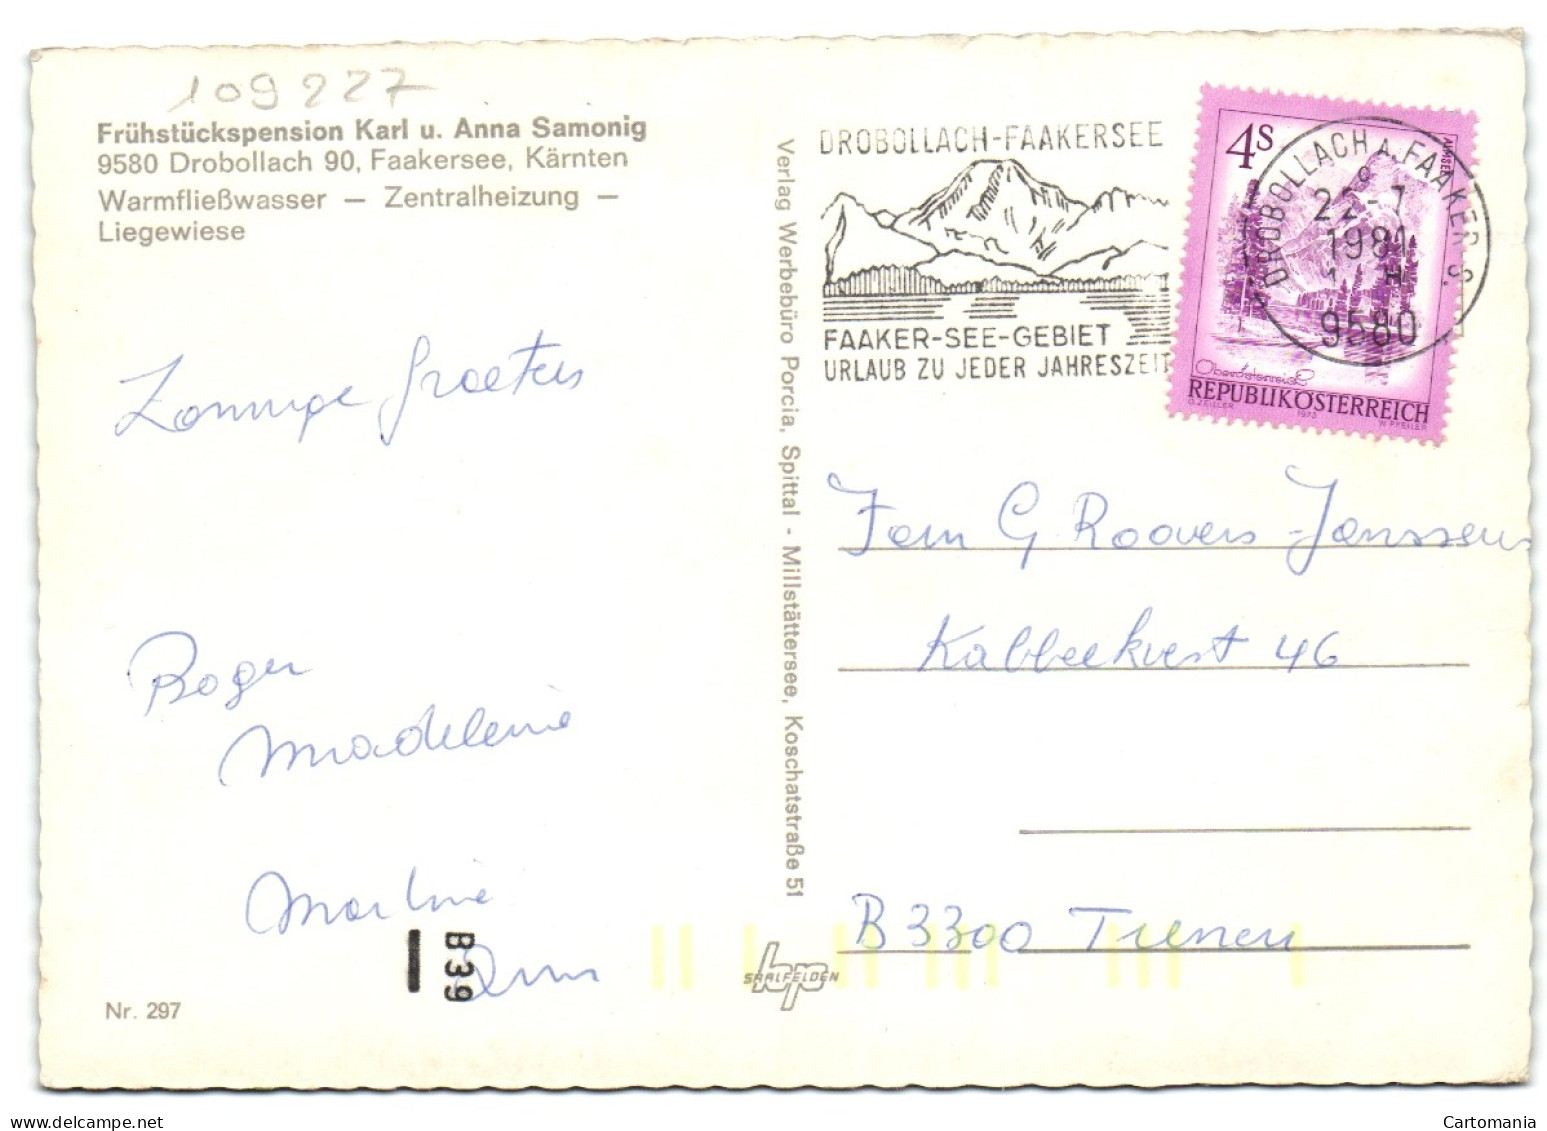 109227
Frühstückspension Karl u. Anna Samonig
9580 Drobollach 90, Faakersee, Kärnten
Warmfließwasser — Zentralheizung —
Liegewiese
Zonnige Groeten
Roger
Madeleine
Martine
B39
Nr. 297
Verlag Werbebüro Porcia, Spittal - Millstättersee, Koschatstraße 51
SAALFELDEN
DROBOLLACH-FAAKERSEE
FAAKER-SEE-GEBIET
URLAUB ZU JEDER JAHRESZEIT
4S
ALMSEE
Oberösterreich
REPUBLIK ÖSTERREICH
O. ZEILER 1973 W. PFEILER
DROBOLLACH A. FAAKER S.
22-7
1981
9580
Fam G Roovers-Janssens
Kabbeekvest 46
B 3300 Tienen
Cartomania
delcampe.net